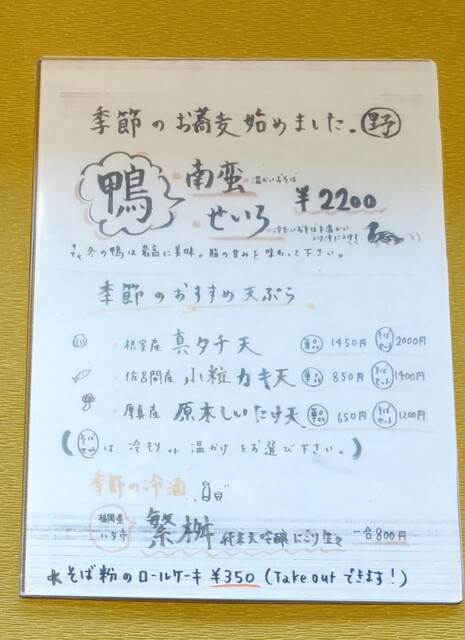 季節のお蕎麦始めました。野
鴨 南蛮 ※温かいおそば
せいろ ¥2200
※冷たいおそばを温かい
つけ汁につけて
冬の鴨は最高に美味。脂の甘みを味わって下さい。
季節のおすすめ天ぷら
・根室産 真タチ天 単品 1450円 そばセット 2000円
・佐呂間産 小粒カキ天 単品 850円 そばセット 1400円
・厚真産 原木しいたけ天 単品 650円 そばセット 1200円
(そばセットは冷モリor温かけをお選び下さい。)
季節の冷酒
福岡県 繁桝 純米大吟醸にごり生々 一合800円
そば粉のロールケーキ ¥350 (Take outできます!)